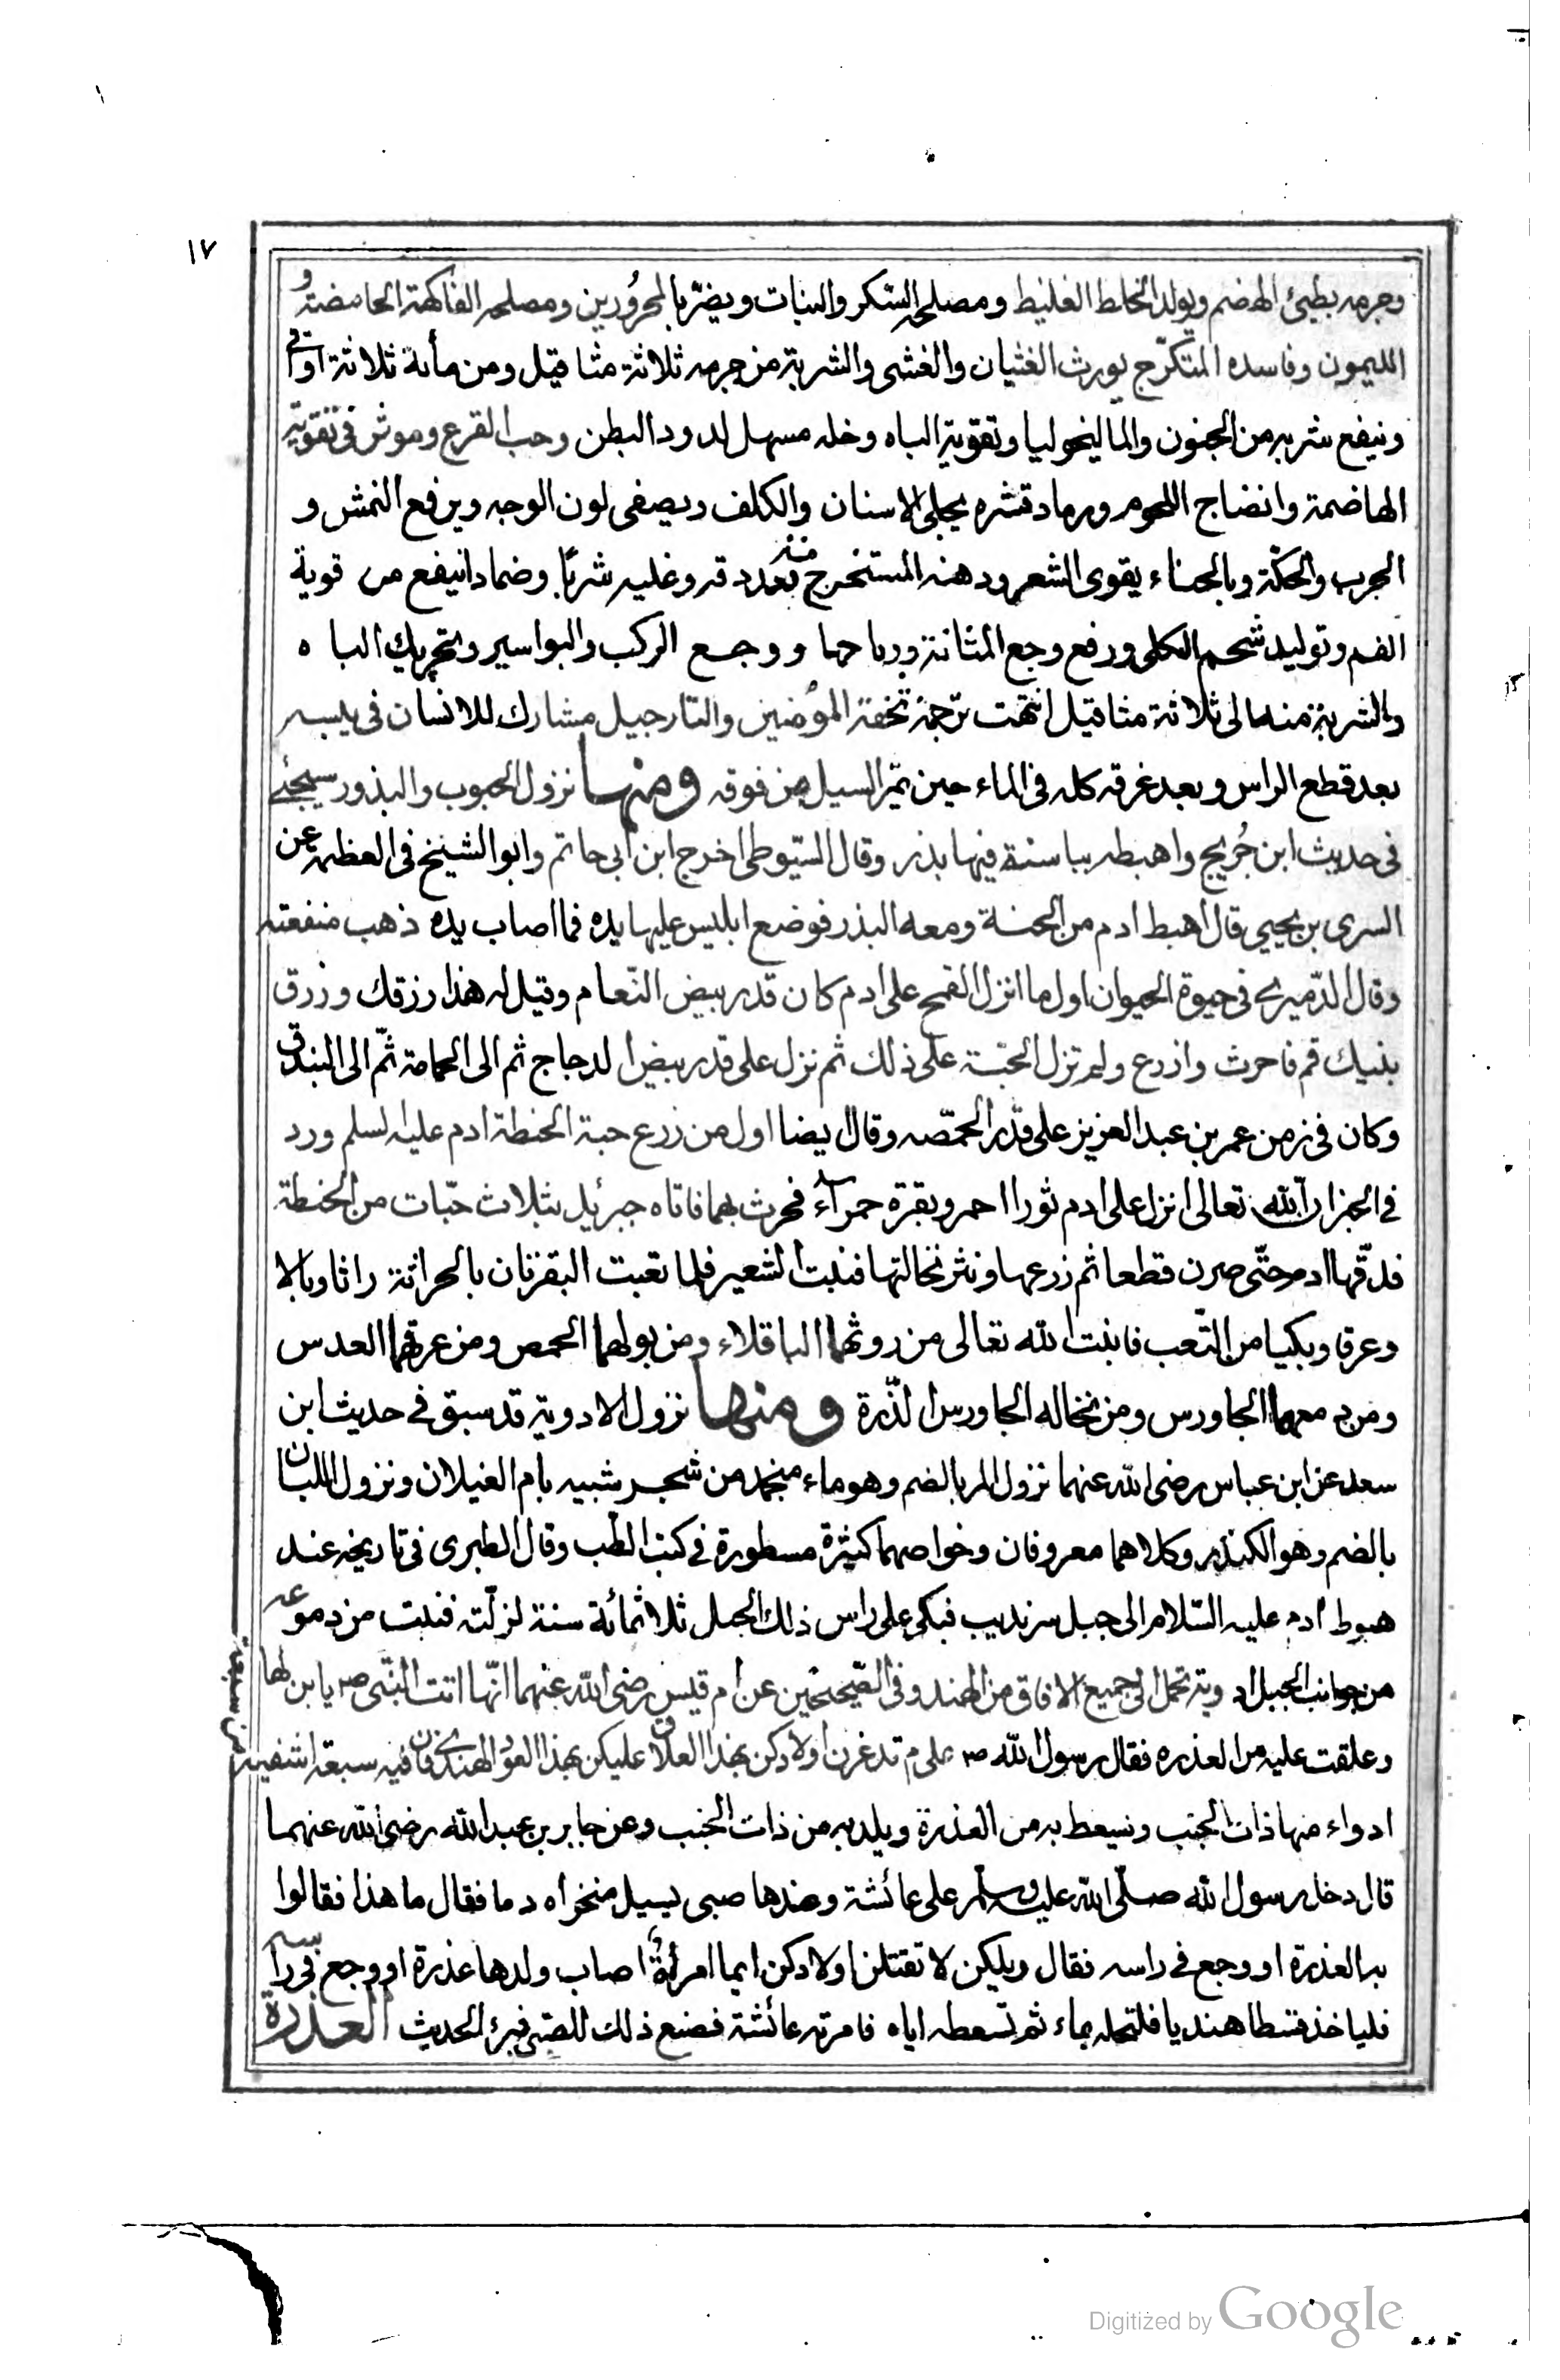 ١٧
وجرمه بطيئ الهضم ويولد الخلط الغليظ ومصلحه السّكر والنبات ويضرّ بالمحرُورين ومصلحه الفاكهة الحامضة و
الليمون وفاسده المتكرّج يورث الغثيان والغشى والشربة من جرمه ثلاثة مثاقيل ومن مأنة ثلاثة اواقى
وينفع شربه من الجنون والماليخوليا وتقوية الباه وخله مسهل لدود البطن وحب القرع وموثر فى تقوية
الهاضمة وانضاج اللحوم ورماد قشره يجلى الاسنان والكلف ويصفى لون الوجه ويرفع النمش و
الجرب والحكّة وبالحناء يقوى الشعر ودهنه المستخرج منه بعد دقه وغليه شربًا وضمادا ينفع من قوية
الفم وتوليد شحم الكلى ورفع وجع المثانة ورياحها ووجع الركب والبواسير وتحريك الباه
والشربة منه الى ثلاثة مثاقيل انتهت ترجمة تحفة المؤمنين والنارجيل مشارك للانسان فى يلبسه
بعد قطع الراس وبعد غرقه كله فى الماء حين يمّر السيل من فوقه ومنها نزول الحبوب والبذور سيجئ
فى حديث ابن جُريج واهبطه بباسنة فيها بذر وقال السّيوطى اخرج ابن ابى حاتم وابو الشيخ فى العظمة عن
السرى بن يحيى قال اهبط ادم من الجنة ومعه البذر فوضع ابليس عليها يده فما اصاب يده ذهب منفعته
وقال الدّميرى فى حيوة الحيوان اول ما انزل القمح على ادم كان قدر بيض النّعام وقيل له هذا رزقك ورزق
بنيك قم فاحرث وازرع ولم تزل الحبّة على ذلك ثم نزل على قدر بيض الدجاج ثم الى الحمامة ثمّ الى البندق
وكان فى زمن عمر بن عبد العزيز على قدر الحمّصه وقال ايضا اول من زرع حبة الحنطة ادم عليه السلم ورد
فى الخبر ان الله تعالى انزل على ادم ثورا احمر وبقرة حمرآء فحرث بهما فاتاه جبرئيل بثلاث حبّات من الحنطة
فدقّها ادم حتّى صرن قطعا ثم زرعها ونثر نخالتها فنبت الشعير فلما تعبت البقرتان بالحراثة راثا وبالا
وعرقا وبكيا من التّعب فانبت الله تعالى من روثهما الباقلاء ومن بولهما الحمص ومن عرقهما العدس
ومن دمعهما الجاورس ومن نخاله الجاورس الذّرة ومنها نزول الادوية قد سبق فى حديث ابن
سعد عن ابن عباس رضى الله عنهما نزول المر بالضم وهو ماء منجمد من شجر شبيه بام الغيلان ونزول اللبان
بالضم وهو الكندر وكلاهما معروفان وخواصهما كثيرة مسطورة فى كتب الطّب وقال الطبرى فى تاريخه عند
هبوط ادم عليه السّلام الى جبل سرنديب فبكى على راس ذلك الجبل ثلاثمائة سنة لزلّته فنبت من دموعه
من جوانب الجبل ادوية تحمل الى جميع الافاق من الهند وفى الصّحيحين عن ام قيس رضى الله عنهما انّها اتت النبّى ص يا بن لها
وعلقت عليه من العذره فقال رسول الله ص على م تدغرن اولادكن بهذا العلاق عليكن بهذا العود الهندى فان فيه سبعة اشفية من سبعة
ادواء منها ذات الجنب ونسعط به من العذرة ويلد به من ذات الجنب وعن جابر بن عبد الله رضى الله عنهما
قال دخل رسول الله صلّى الله عليه وسلّم على عائشة وعندها صبى يسيل منخراه دما فقال ما هذا فقالوا
به العذرة او وجع فى راسه فقال ويلكن لا تقتلن اولادكن ايما امرأةٍ اصاب ولدها عذرة او وجع فى راسه
فلياخذ قسطا هنديا فلتحله بماء ثم تسعطه اياه فامرته عائشة فصنع ذلك للصبى فبرئ الحديث العذرة
Digitized by Google